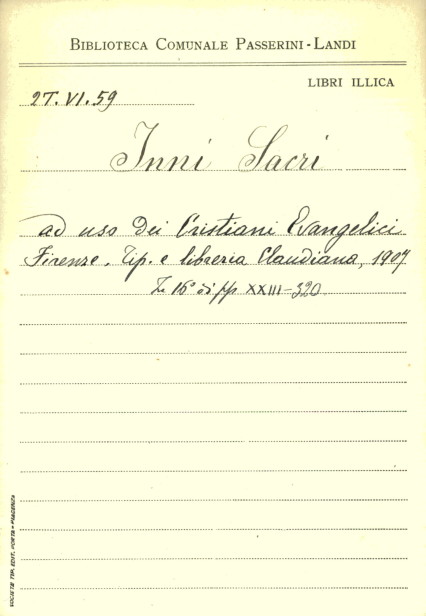 BIBLIOTECA COMUNALE PASSERINI-LANDI
LIBRI ILLICA
2T.VI.59
Inni Sacri
ad uso dei Cristiani Evangelici
Firenze. Tip. e libreria Claudiana, 1907
In 16° di pp XXIII-320
SOCIETÀ TIP. EDIT. PORTA - PIACENZA